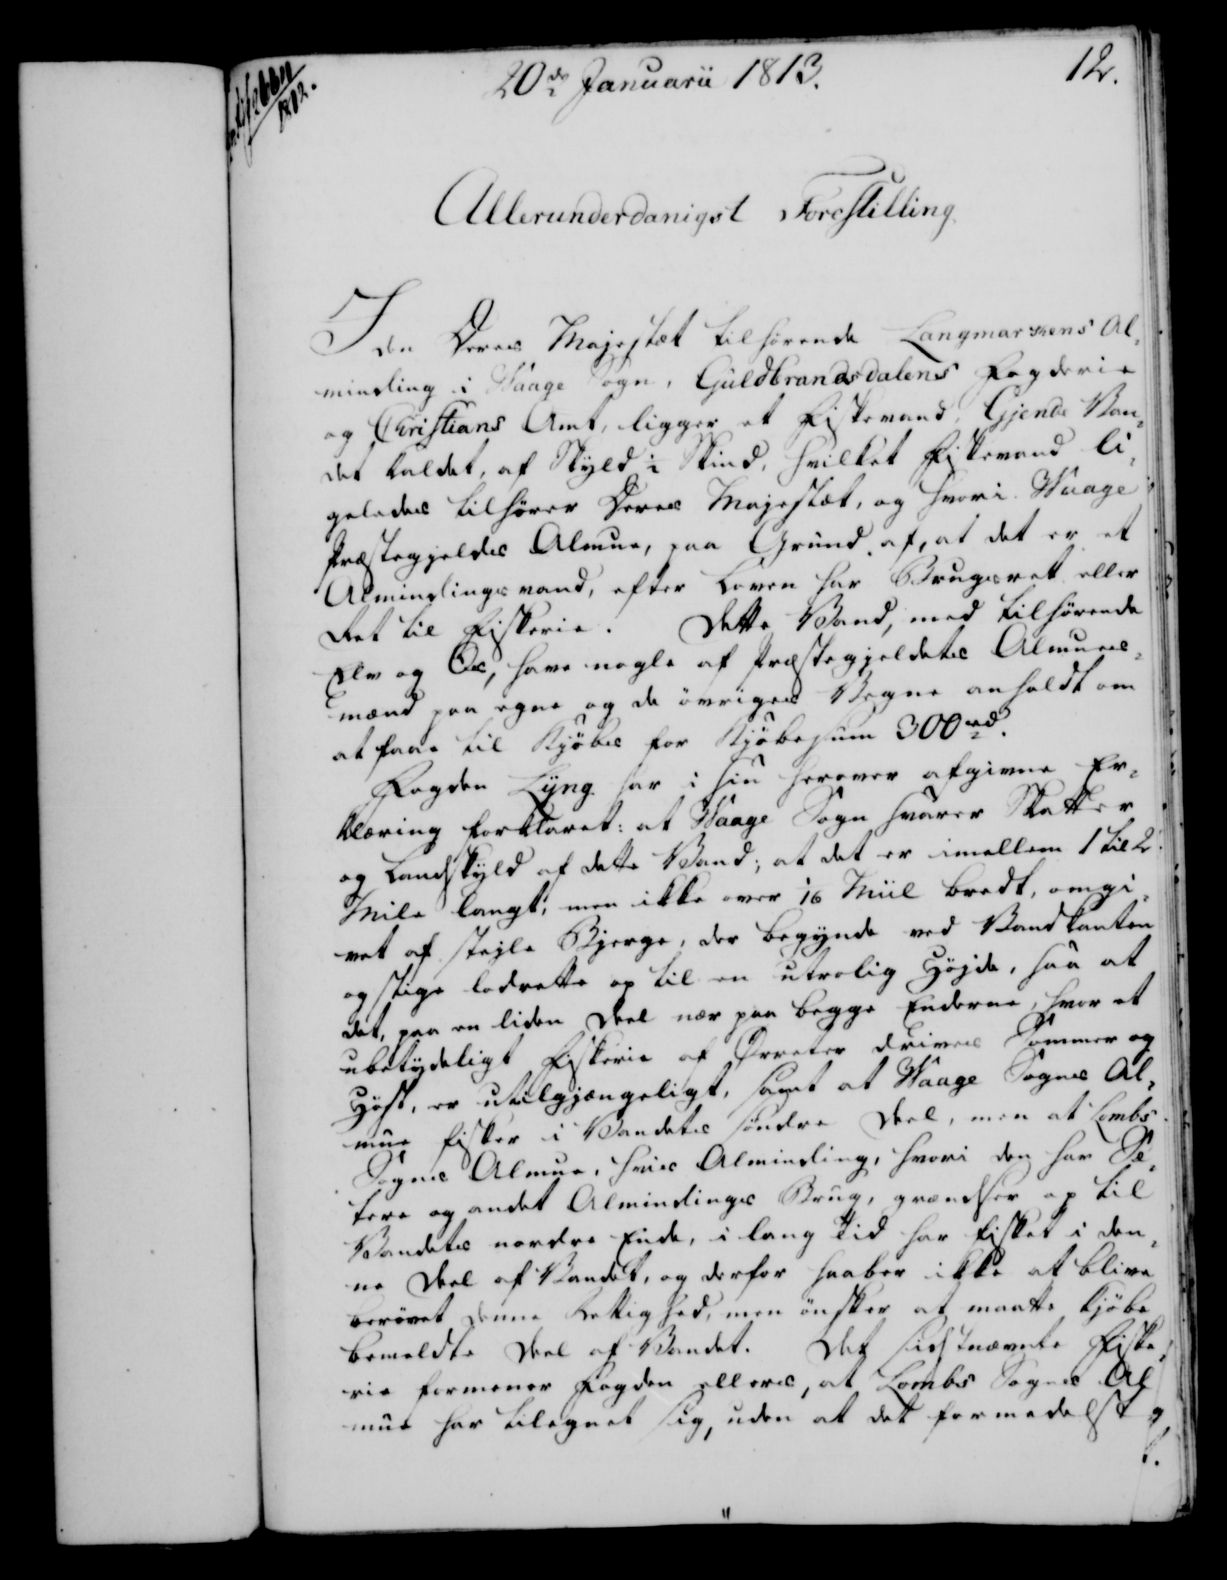 20de Januarii 1813.
12.
1812.
Allerunderdanigst Forestilling
I den Deres Majestæt tilhørende Langmarkens Al-
minding i Waage Sogn, Guldbrandsdalens Fogderie
og Christians Amt, ligger et Fiskevand, Gjende Van-
det kaldet, af Skyld ½ Skind, hvilket Fiskevand li-
geledes tilhører Deres Majestæt, og hvori Waage
Præstegjelds Almue, paa Grund af, at det er et
Almindings vand, efter Loven har Brugsret eller
Ret til Fiskerie. Dette Vand, med tilhørende
Elv og Os, have nogle af Præstegjeldets Almues-
mænd paa egne og de øvriges Vegne anholdt om
at faae til Kjøbs for Kjøbesum 300 rd.
Fogden Lyng har i sin herover afgivne Er-
klæring forklaret: at Waage Sogn svarer Skatter
og Landskyld af dette Vand; at det er imellem 1 til 2
Mile langt, men ikke over 1/16 Miil bredt, omgi-
vet af steile Bjerge, der begynde ved Vandkanten
og stige lodrette op til en utrolig Højde, saa at
det, paa en liden Deel nær paa begge Enderne, hvor et
ubetydeligt Fiskerie af Ørreter drives Sommer og
Høst, er utilgjængeligt, samt at Waage Sogns Al-
mue fisker i Vandets søndre Deel, men at Lombs
Sogns Almue, hvis Alminding, hvori den har Sæ-
tere og andet Almindings Brug, grændser op til
Vandets nordre Ende, i lang Tid har fisket i den-
ne Deel af Vandet, og derfor haaber ikke at blive
berøvet denne Rettighed, men ønsker at maatte kjøbe
bemeldte Deel af Vandet. Det sidstnævnte Fiske-
rie formener Fogden ellers, at Lombs Sogns Al-
mue har tilegnet sig, uden at det formedelst